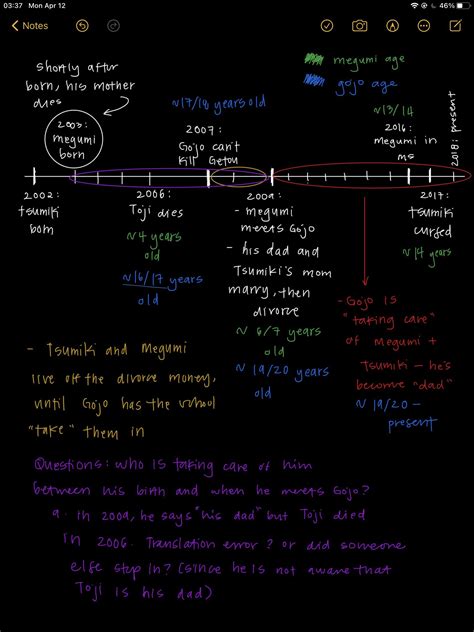 03:37 Mon Apr 12
46%
Notes
Shortly after
born, his mother
dies
megumi age
gojo age
~17/18 years old
~13/14
2003:
megumi
born
2007:
Gojo can't
kill Getou
2016:
megumi in
ms
2018: present
2002:
tsumiki
born
2006:
Toji dies
~4 years
old
~16/17 years
old
2009:
- megumi
meets Gojo
- his dad and
Tsumiki's mom
marry, then
divorce
~6/7 years
old
~19/20 years
old
2017:
tsumiki
cursed
~14 years
- Gojo is
"taking care"
of Megumi +
Tsumiki - he's
become "dad"
~19/20 -
present
- Tsumiki and Megumi
live off the divorce money,
until Gojo has the school
"take" them in
Questions: who is taking care of him
between his birth and when he meets Gojo?
a. in 2009, he says "his dad" but Toji died
in 2006. Translation error? or did someone
else step in? (since he is not aware that
Toji is his dad)